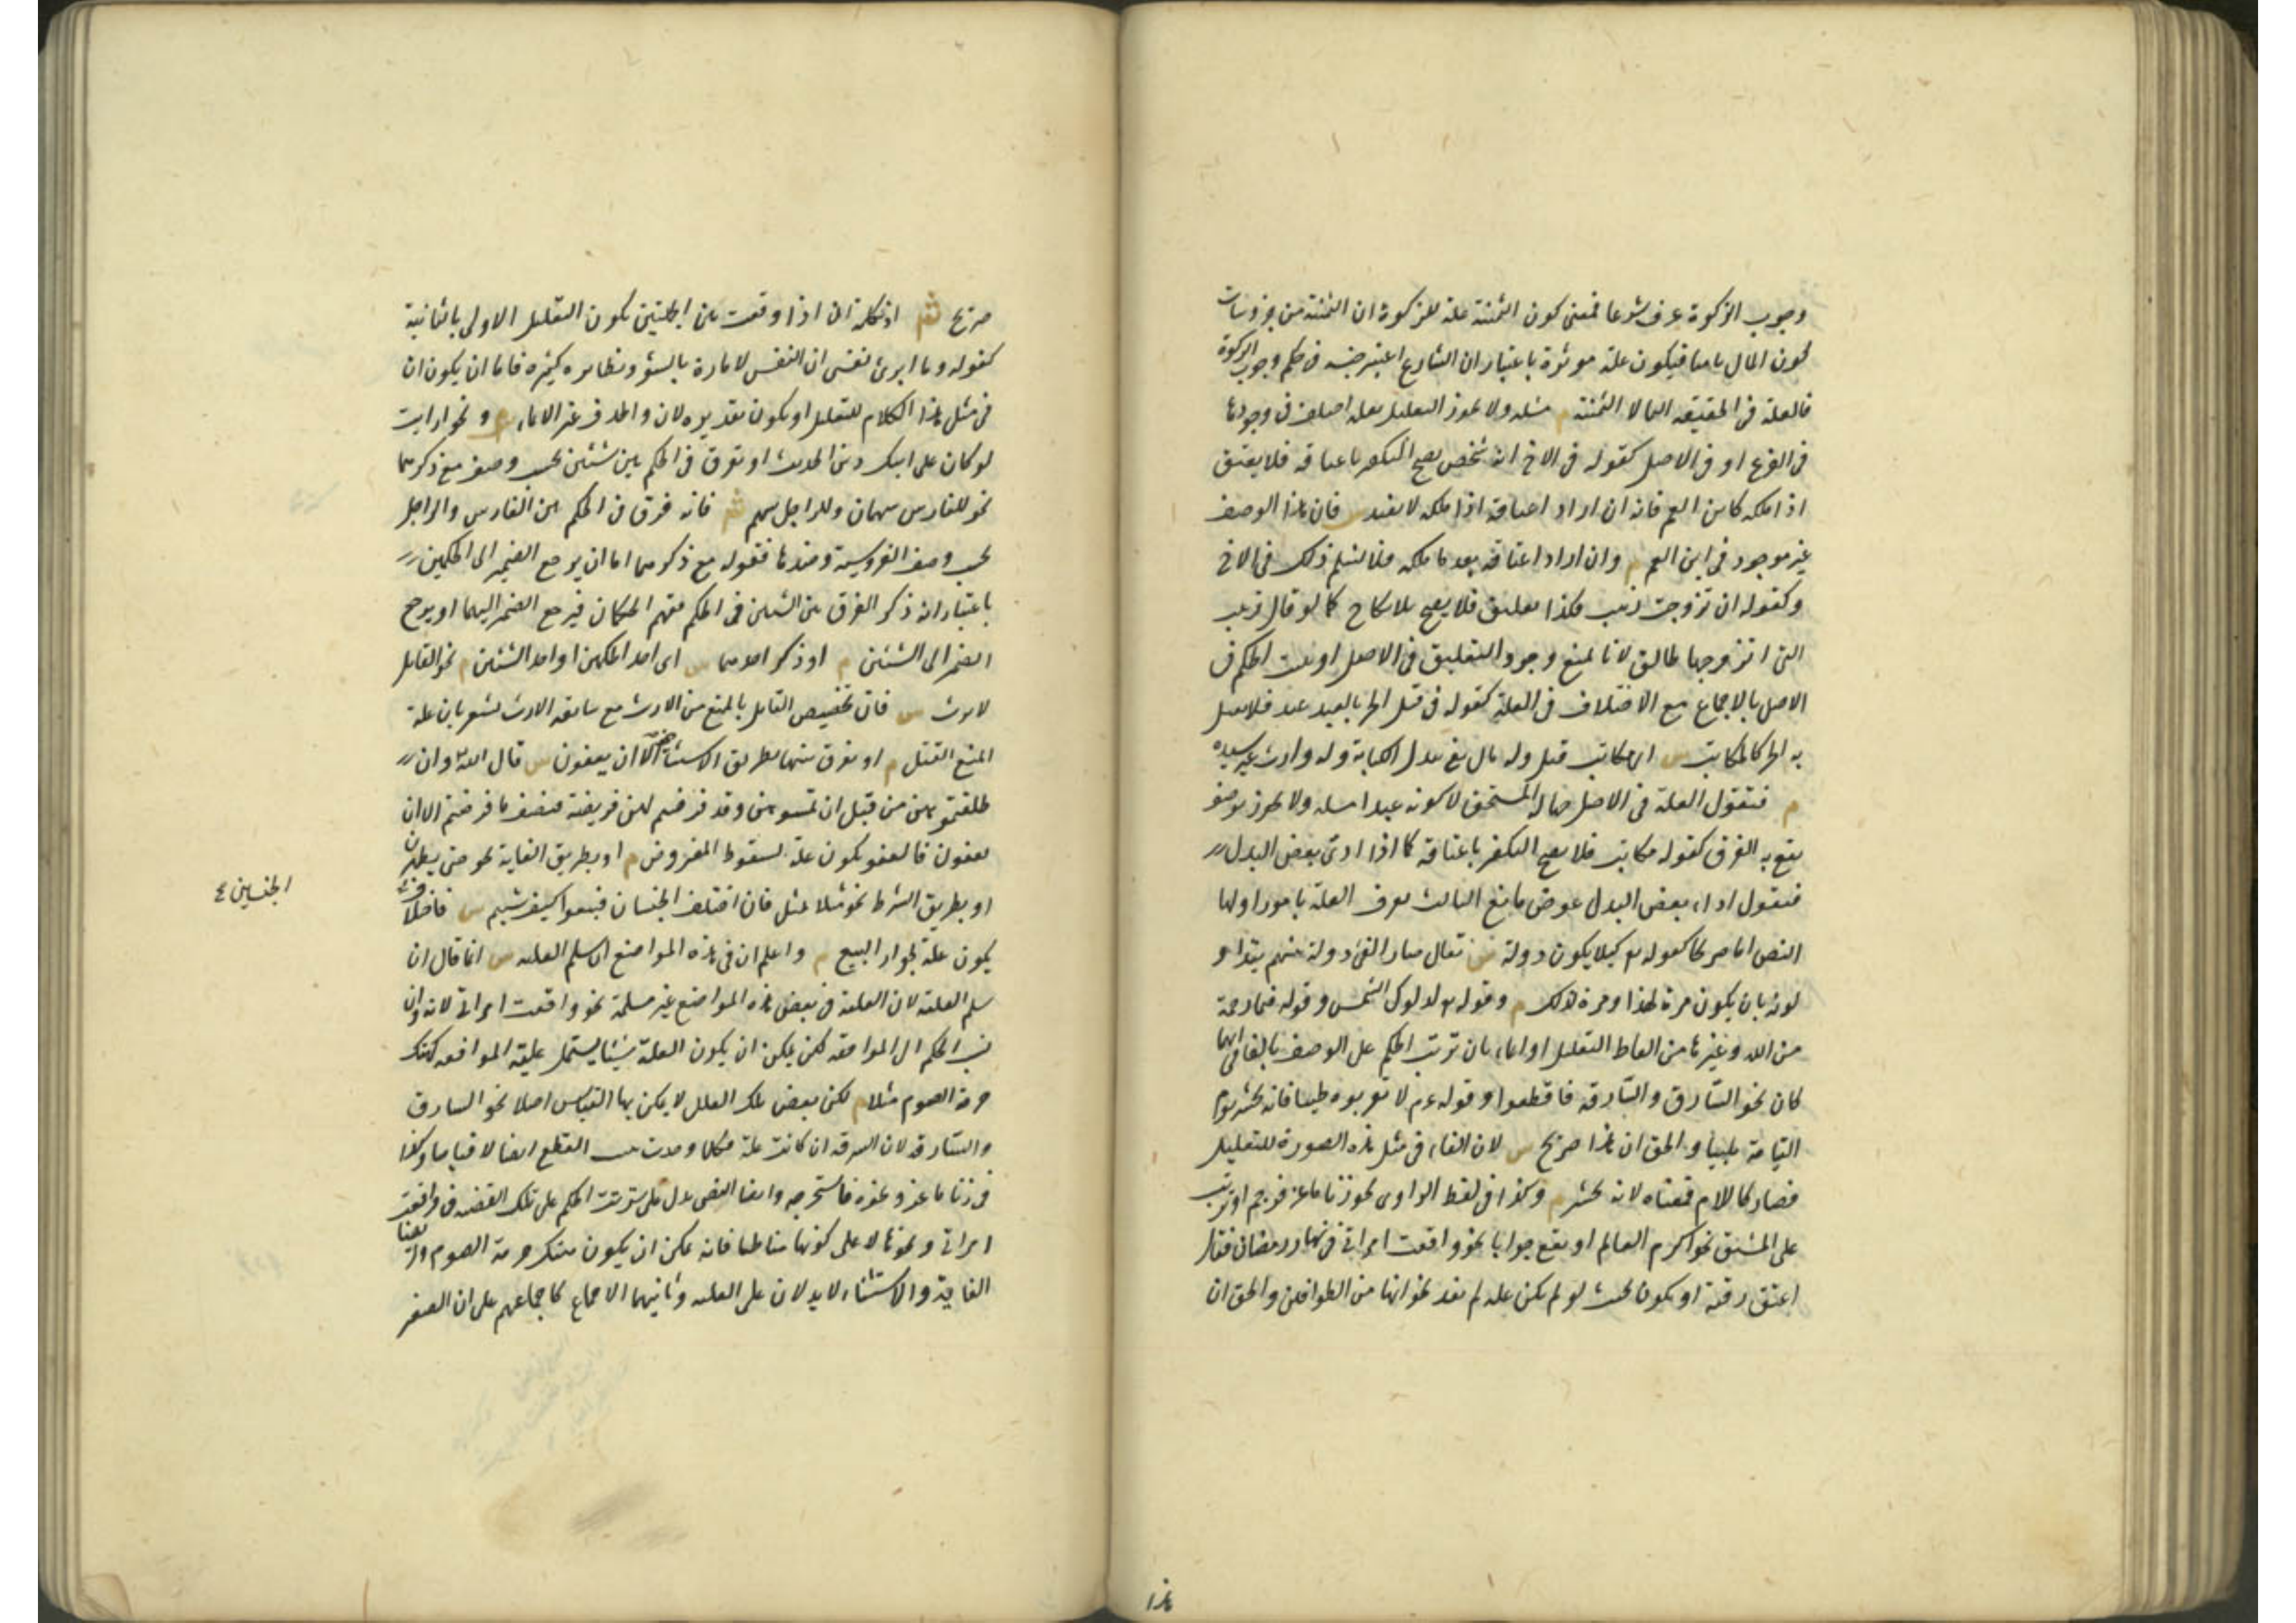 وجوب الزكوة عرف شرعا فمعنى كون الثمنية علة للزكوة ان الثمنية من جزئيات
كون المال ناميا فيكون علة موثرة باعتبار ان الشارع اعتبر جنسه في حكم وجوب الزكوة
فالعلة في الحقيقة النما لا الثمنية م مسئلة ولا يجوز التعليل بعلة اختلف في وجودها
في الفرع او في الاصل كقوله في الاخ انه شخص يصح التكفير باعتاقه فلا يعتق
اذا ملكه كابن العم فانه ان اراد اعتاقه اذا ملكه لا يفيد س فان هذا الوصف
غير موجود في ابن العم م وان اراد اعتاقه بعد ما ملكه فلا نسلم ذلك في الاخ
وكقوله ان تزوجت زينب فكذا تعليق فلا يصح بلا نكاح كما لو قال زينب
التي اتزوجها طالق لانا نمنع وجود التعليق في الاصل او ثبت الحكم في
الاصل بالاجماع مع الاختلاف في العلة كقوله في قتل الحر بالعبد عبد فلا يقتل
به الحر كالمكاتب س اى مكاتب قتل وله مال يفى ببدل الكتابة وله وارث غير سيده
م فنقول العلة في الاصل جهالة المستحق لا كونه عبدا مسئلة ولا يجوز بوصف
يقع به الفرق كقوله مكاتب فلا يصح التكفير باعتاقه كما اذا ادى بعض البدل
فنقول اداء بعض البدل عوض مانع الثالث يعرف العلة بامور اولها
النص اما صريحا كقوله تع كيلا يكون دولة س يقال صار الفئ دولة بينهم يتداو
لونه بان يكون مرة لهذا ومرة لذلك م وقوله تع لدلوك الشمس وقوله فبما رحمة
من الله وغيرها من الفاظ التعليل او ايماء بان ترتب الحكم على الوصف بالفا في ايهما
كان نحو السارق والسارقة فاقطعوا وقوله عم لا تقربوه طيبا فانه يحشر يوم
القيامة ملبيا والحق ان هذا صريح س لان الفاء في مثل هذه الصورة للتعليل
فصار كاللام فمعناه لانه يحشر م وكذا في لفظ الراوى نحو زنا ماعز فرجم او ترتب
على المشتق نحو اكرم العالم او يقع جوابا نحو واقعت امراتي في نهار رمضان فقال
اعتق رقبة او يكون بحيث لو لم يكن علة لم يفد نحو انها من الطوافين والحق ان
صريح ش اذ كلمة ان اذا وقعت بين الجملتين يكون لتعليل الاولى بالثانية
كقوله وما ابرئ نفسى ان النفس لامارة بالسؤ ونظايره كثيرة فاما ان يكون ان
في مثل هذا الكلام للتعليل او يكون تقديره لان والحذف غير الايماء م ونحو ارايت
لو كان على ابيك دين الحديث او يفرق في الحكم بين شيئين بحسب وصف مع ذكرهما
نحو للفارس سهمان وللراجل سهم ش فانه فرق في الحكم بين الفارس والراجل
بحسب وصف الفروسية وضدها فقوله مع ذكرهما اما ان يرجع الضمير الى الحكمين
باعتبار انه ذكر الفرق بين الشيئين في الحكم ففهم الحكمان فيرجع الضمير اليهما او يرجع
الضمير الى الشيئين م او ذكر احدهما س اى احد الحكمين او احد الشيئين م نحو القاتل
لا يرث س فان تخصيص القاتل بالمنع من الارث مع سابقة الارث يشعر بان علة
المنع القتل م او يفرق بينهما بطريق الاستثناء نحو الا ان يعفون س قال الله تع وان
طلقتموهن من قبل ان تمسوهن وقد فرضتم لهن فريضة فنصف ما فرضتم الا ان
يعفون فالعفو يكون علة لسقوط المفروض م او بطريق الغاية نحو حتى يطهرن
او بطريق الشرط نحو مثلا بمثل فان اختلف الجنسان فبيعوا كيف شئتم س فاختلاف
الجنسين ع
يكون علة لجواز البيع م واعلم ان في هذه المواضع ان سلم العلية س انما قال ان
سلم العلية لان العلية في بعض هذه المواضع غير مسلمة نحو واقعت امراتي لانه وان
نسب الحكم الى المواقعة لكن يمكن ان يكون العلة شيئا يشتمل عليه المواقعة كهتك
حرمة الصوم مثلا م لكن بعض تلك العلل لا يمكن بها القياس اصلا نحو السارق
والسارقة لان السرقة ان كانت علة فكلما وجدت يثبت القطع نصا لا قياسا وكذا
في زنا ماعز ونحوه فاستخرجه وايضا النص يدل على ترتب الحكم على تلك القضية في واقعت
امراتي ونحوها لا على كونها مناطا فانه يمكن ان يكون هتك حرمة الصوم وايضا
الغاية والاستثناء لا يدلان على العلية وثانيهما الاجماع كاجماعهم على ان الصغر
هذا